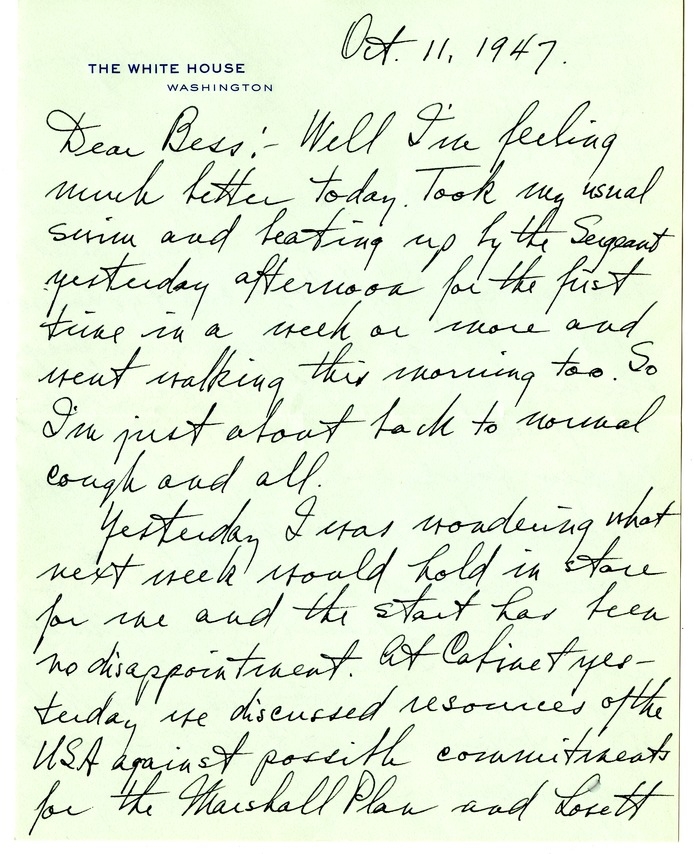 Oct. 11, 1947.
THE WHITE HOUSE
WASHINGTON
Dear Bess:- Well I'm feeling
much better today. Took my usual
swim and beating up by the Sergeant
yesterday afternoon for the first
time in a week or more and
went walking this morning too. So
I'm just about back to normal
cough and all.
Yesterday I was wondering what
next week would hold in store
for me and the start has been
no disappointment. At Cabinet yes-
terday we discussed resources of the
USA against possible commitments
for the Marshall Plan and Lovett